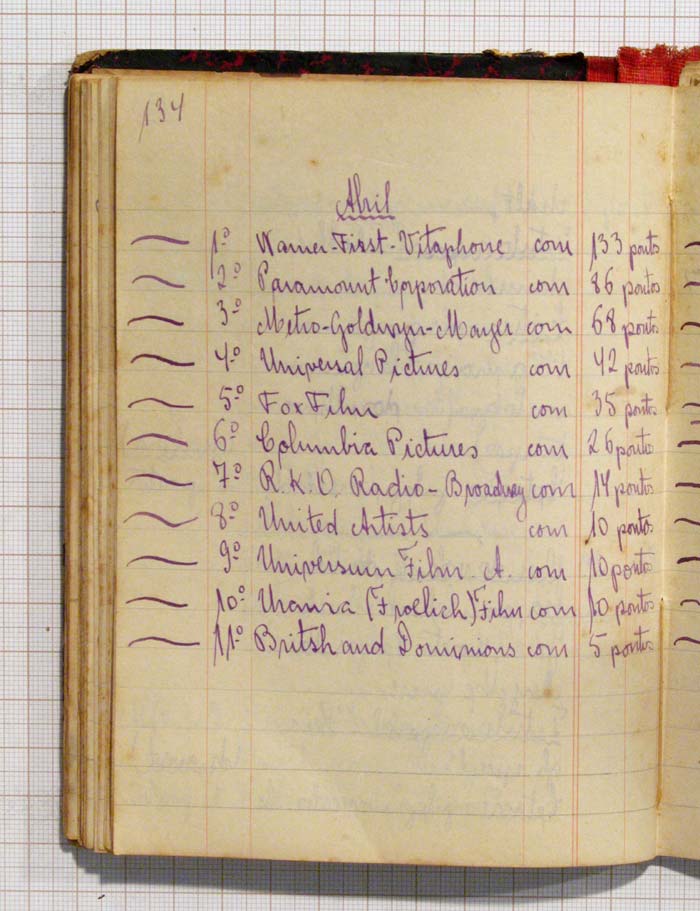 134
Abril
1º Warner-First-Vitaphone com 133 pontos
2º Paramount Corporation com 86 pontos
3º Metro-Goldwyn-Mayer com 68 pontos
4º Universal Pictures com 42 pontos
5º Fox Film com 35 pontos
6º Columbia Pictures com 26 pontos
7º R.K.O. Radio-Broadway com 14 pontos
8º United Artists com 10 pontos
9º Universum Film A. com 10 pontos
10º Urania (Froelich) Film com 10 pontos
11º Britsh and Dominions com 5 pontos